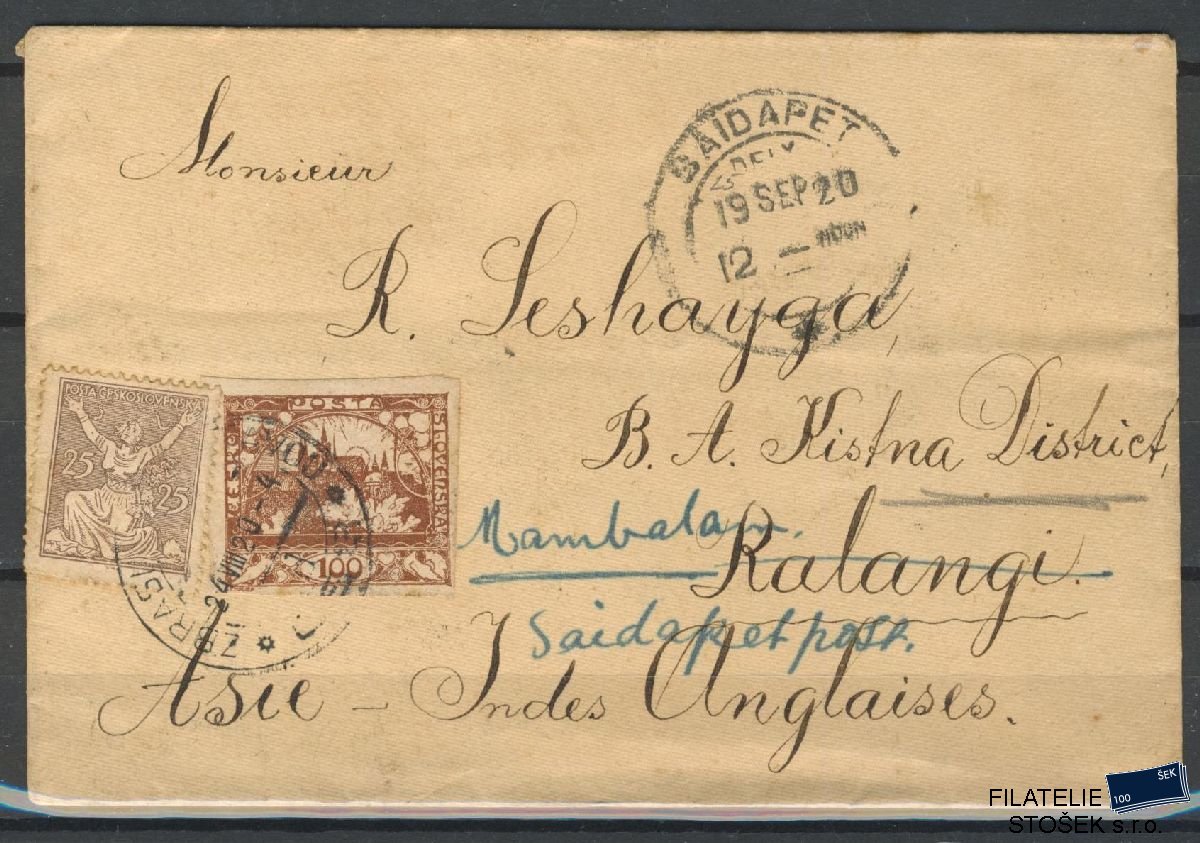 Monsieur
R. Seshayga,
B. A. Kistna District,
Mambalam.
Kalangi.
Saidapet post.
Asie – Indes Anglaises.
SAIDAPET
19 SEP 20
12 – NOON
POSTA ČESKOSLOVENSKÁ
25 25
POŠTA
ČESKO SLOVENSKÁ
100
24 VIII 20 - 4
FILATELIE
STOŠEK s.r.o.
100 ŠEK